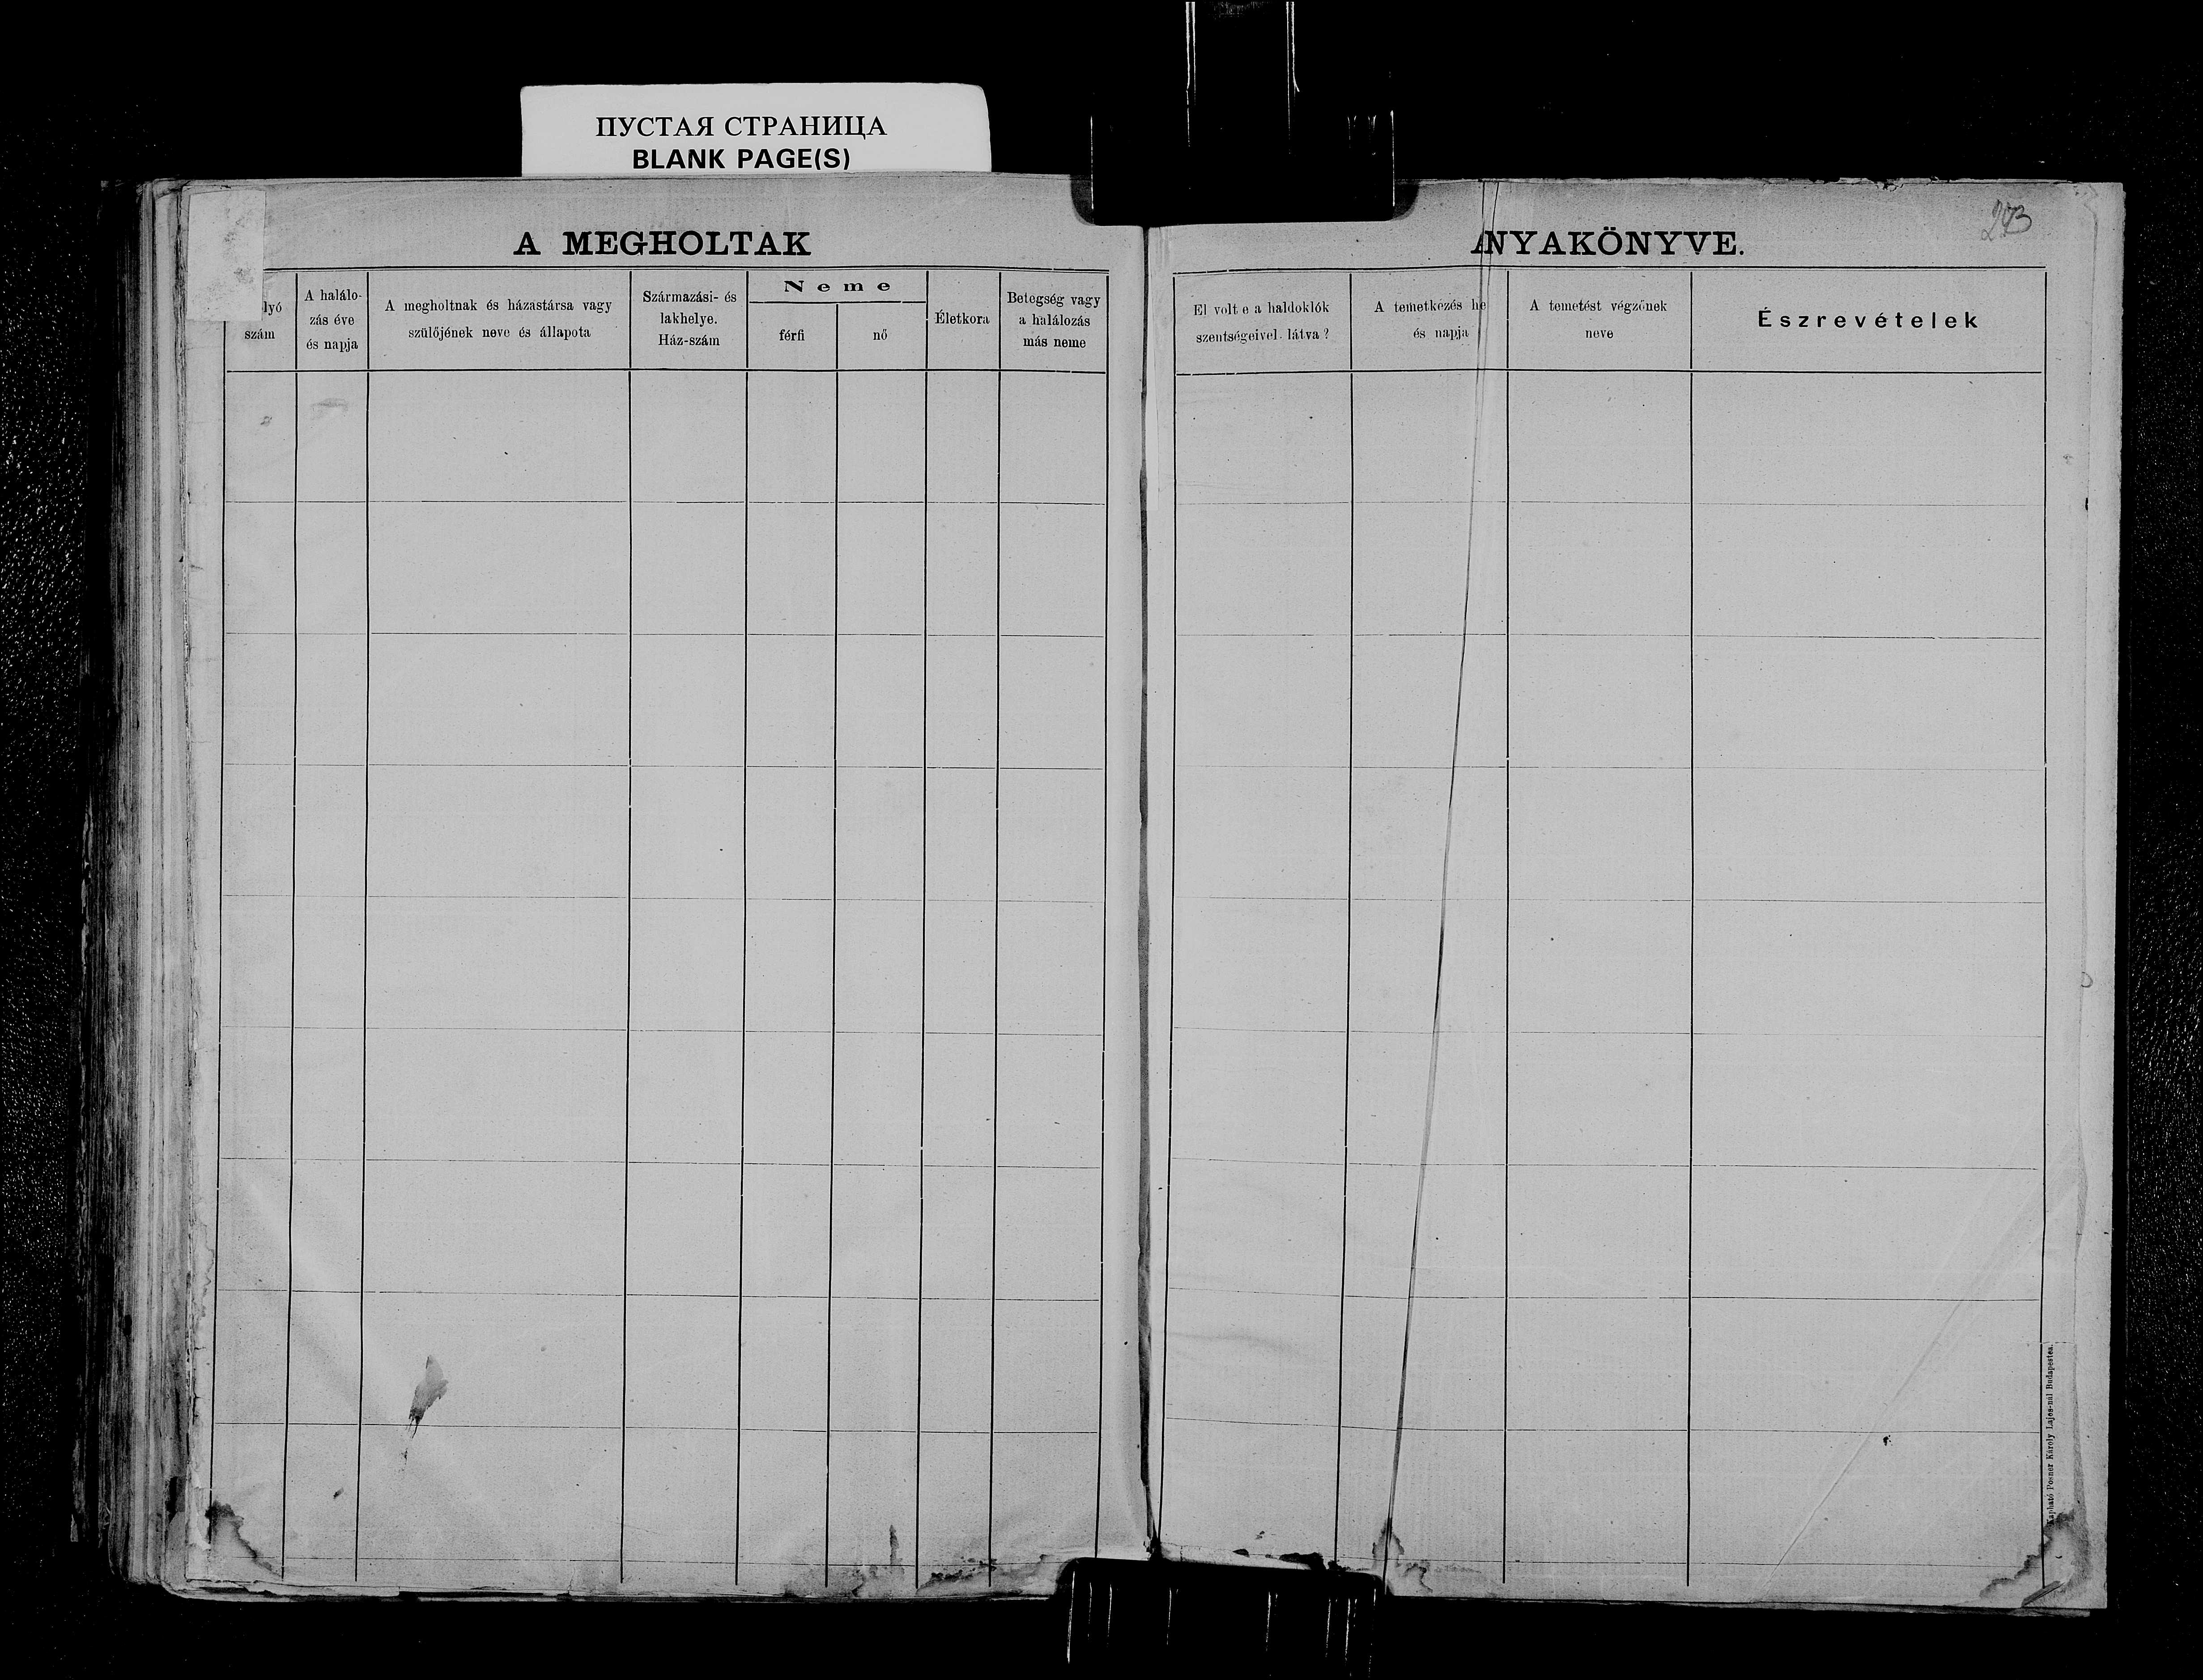 ПУСТАЯ СТРАНИЦА
BLANK PAGE(S)
273
A MEGHOLTAK
ANYAKÖNYVE.
lyó
szám
A halálo-
zás éve
és napja
A megholtnak és házastársa vagy
szülőjének neve és állapota
Származási- és
lakhelye.
Ház-szám
Neme
férfi
nő
Életkora
Betegség vagy
a halálozás
más neme
El volt e a haldoklók
szentségeivel látva ?
A temetkezés he
és napja
A temetést végzőnek
neve
Észrevételek
Kapható Posner Károly Lajos-nál Budapesten.